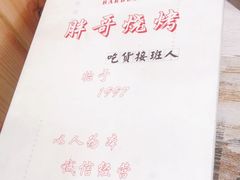 胖哥烧烤
吃货接班人
始于
1997
以人为本
诚信经营